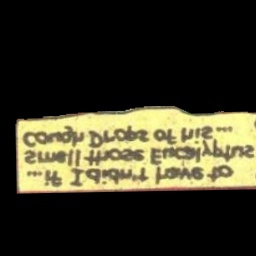 ...if I didn't have to
smell those Eucalyptus
Cough Drops of his...